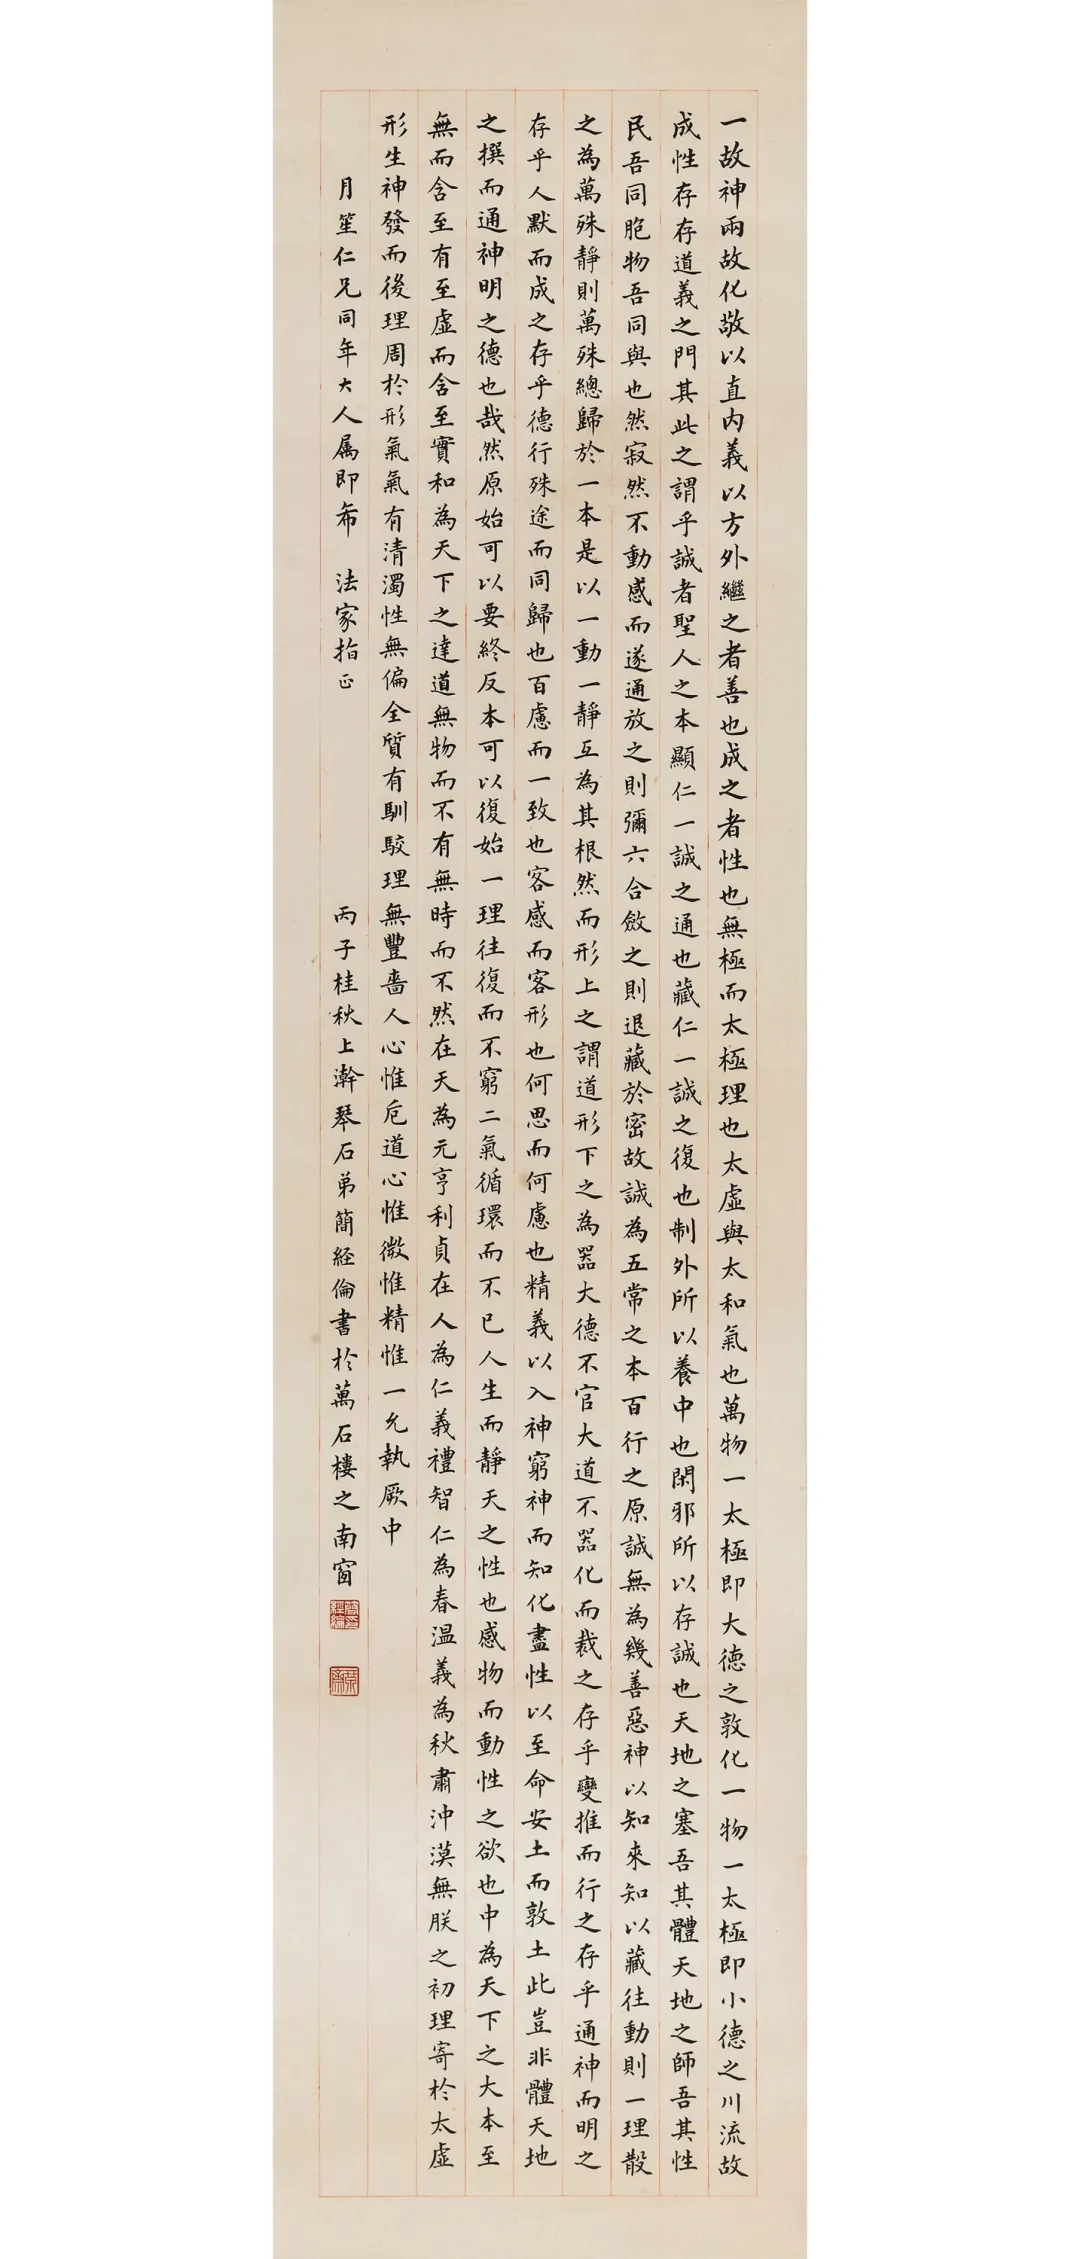 一故神兩故化敬以直內義以方外繼之者善也成之者性也無極而太極理也太虛與太和氣也萬物一太極即大德之敦化一物一太極即小德之川流故
成性存存道義之門其此之謂乎誠者聖人之本顯仁一誠之通也藏仁一誠之復也制外所以養中也閑邪所以存誠也天地之塞吾其體天地之師吾其性
民吾同胞物吾同與也然寂然不動感而遂通放之則彌六合斂之則退藏於密故誠為五常之本百行之原誠無為幾善惡神以知來知以藏往動則一理散
之為萬殊靜則萬殊總歸於一本是以一動一靜互為其根然而形上之謂道形下之為器大德不官大道不器化而裁之存乎變推而行之存乎通神而明之
存乎人默而成之存乎德行殊途而同歸也百慮而一致也客感而客形也何思而何慮也精義以入神窮神而知化盡性以至命安土而敦土此豈非體天地
之撰而通神明之德也哉然原始可以要終反本可以復始一理往復而不窮二氣循環而不已人生而靜天之性也感物而動性之欲也中為天下之大本至
無而含至有至虛而含至實和為天下之達道無物而不有無時而不然在天為元亨利貞在人為仁義禮智仁為春溫義為秋肅沖漠無朕之初理寄於太虛
形生神發而後理周於形氣氣有清濁性無偏全質有馴駁理無豐嗇人心惟危道心惟微惟精惟一允執厥中
月笙仁兄同年大人属即希 法家指正
丙子桂秋上澣琴石弟簡經倫書於萬石樓之南窗